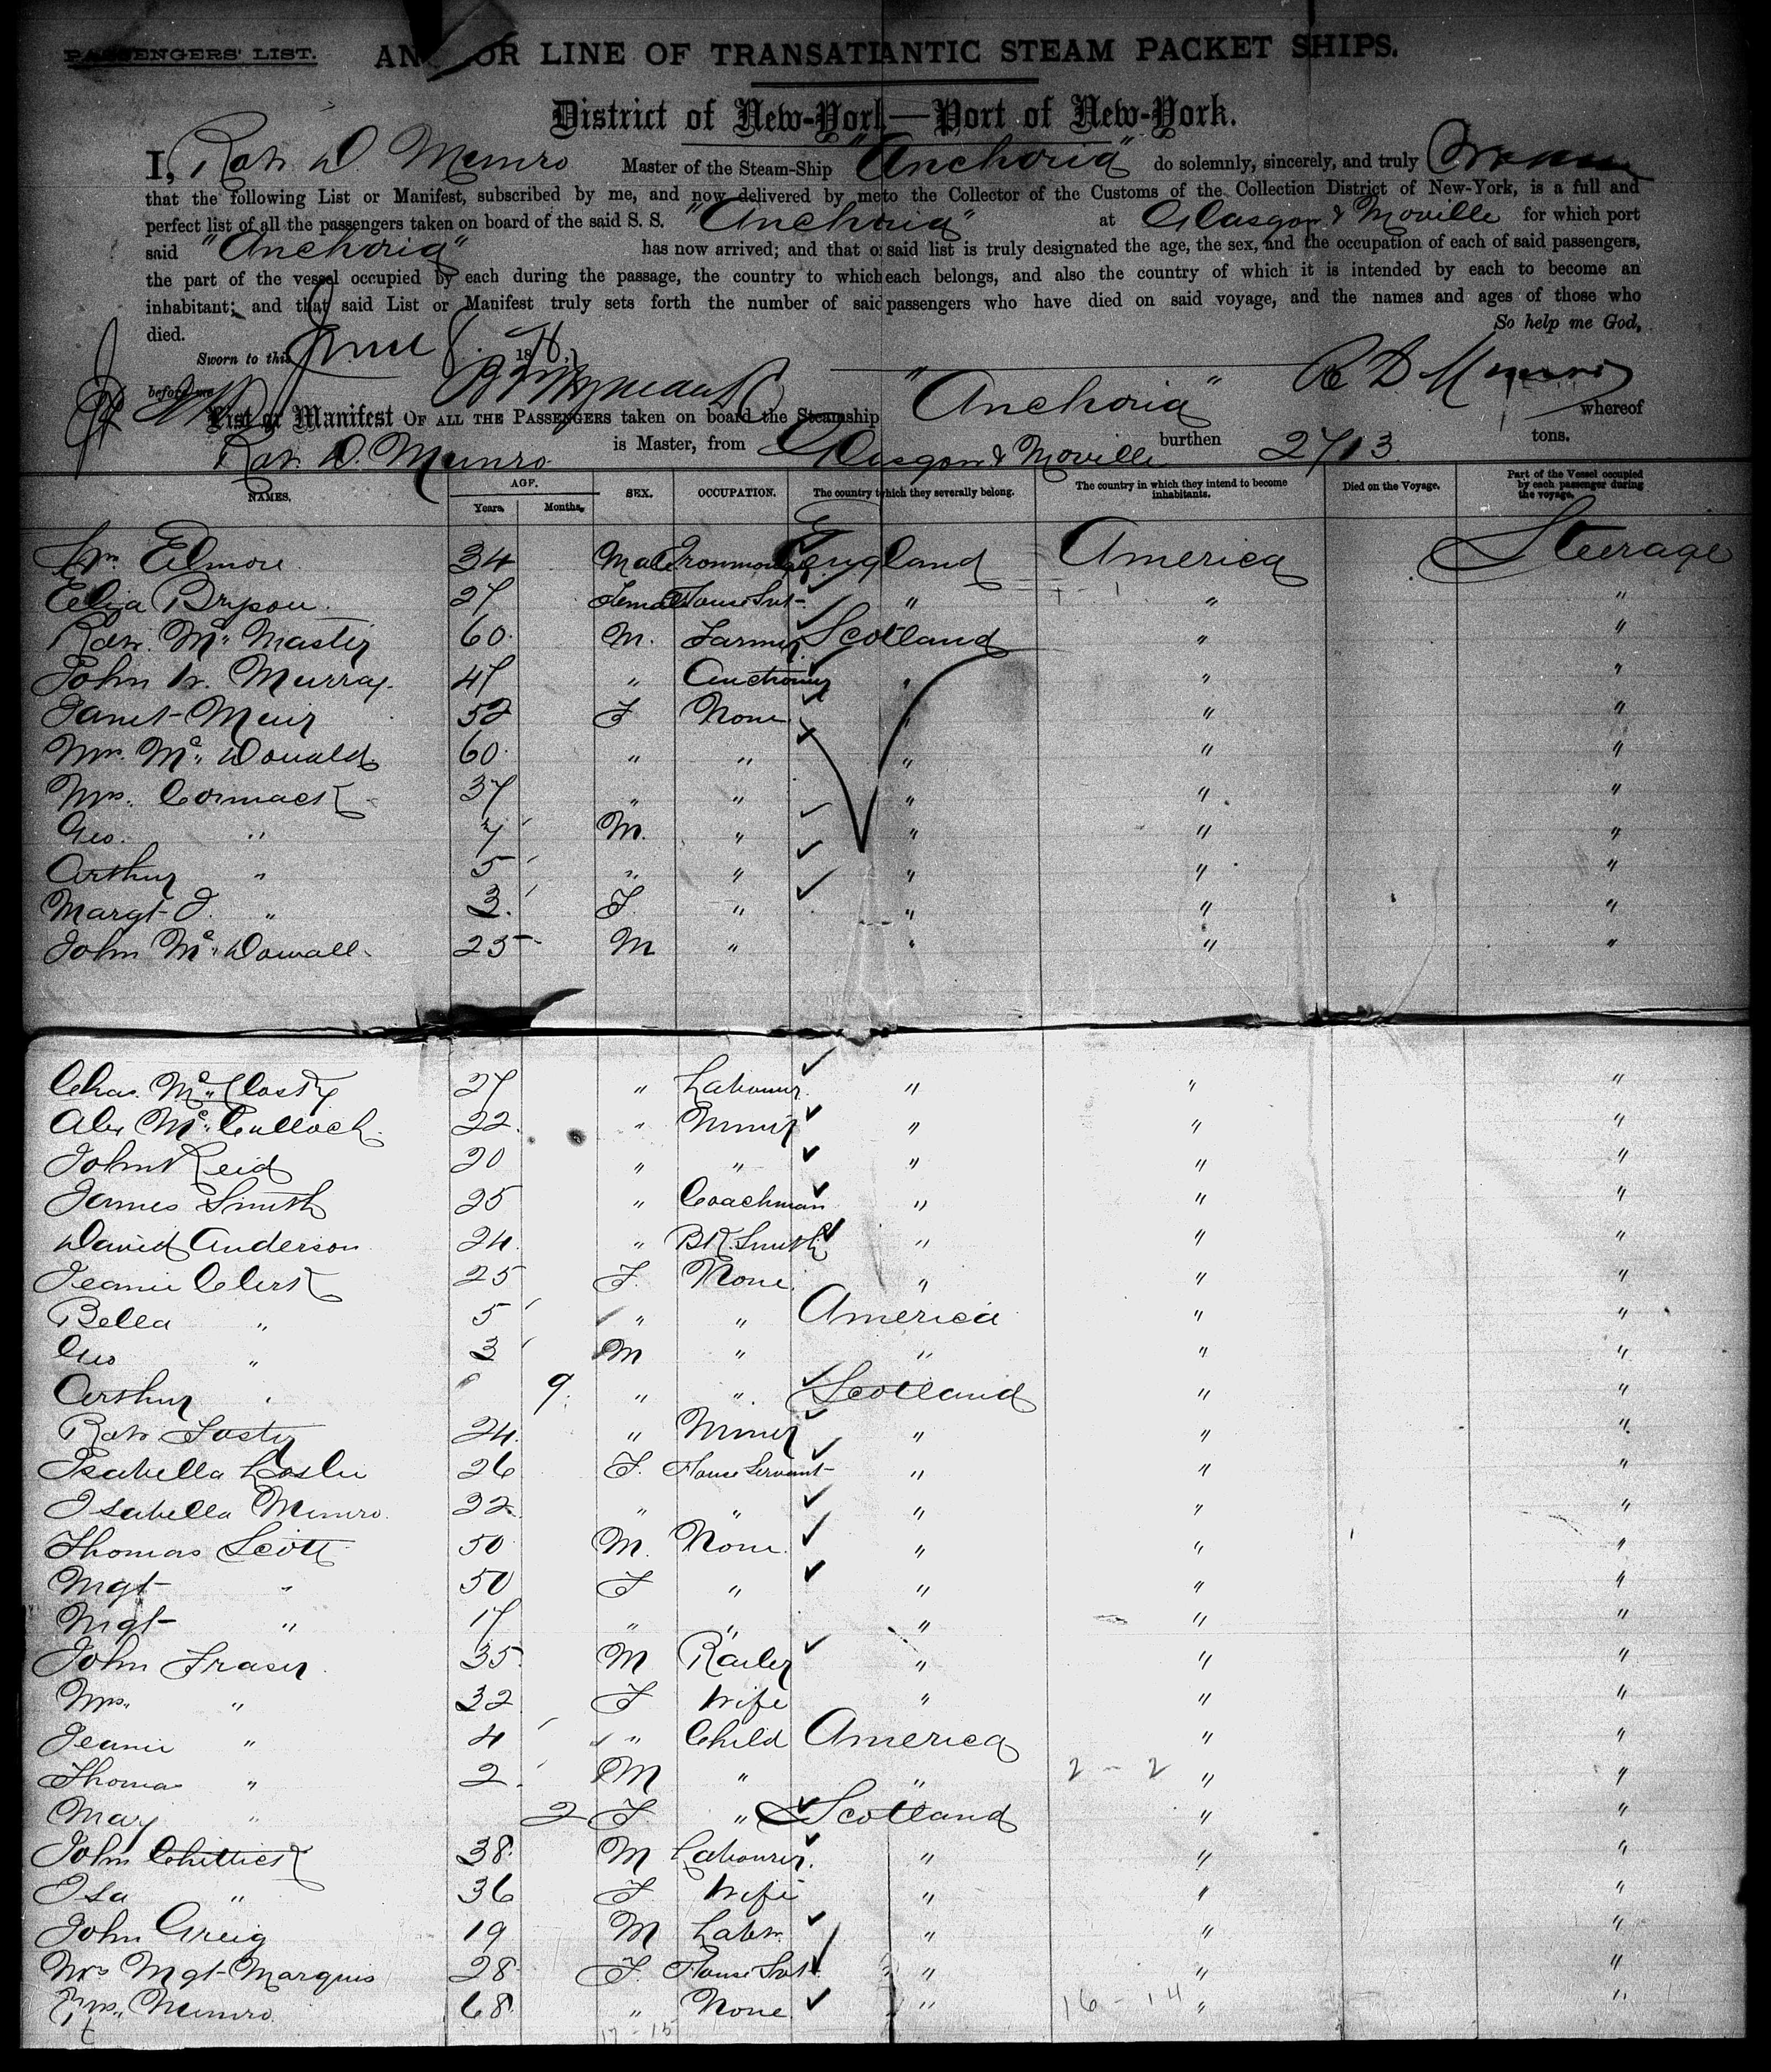 PASSENGERS' LIST. ANCHOR LINE OF TRANSATLANTIC STEAM PACKET SHIPS.
District of New-York—Port of New-York.
I, Robt. D. Munro Master of the Steam-Ship "Anchoria" do solemnly, sincerely, and truly
that the following List or Manifest, subscribed by me, and now delivered by me to the Collector of the Customs of the Collection District of New-York, is a full and
perfect list of all the passengers taken on board of the said S. S. "Anchoria" at Glasgow & Moville for which port
said "Anchoria" has now arrived; and that on said list is truly designated the age, the sex, and the occupation of each of said passengers,
the part of the vessel occupied by each during the passage, the country to which each belongs, and also the country of which it is intended by each to become an
inhabitant; and that said List or Manifest truly sets forth the number of said passengers who have died on said voyage, and the names and ages of those who
died. So help me God,
Sworn to this June 8. 18
before me R D Munro
List or Manifest OF ALL THE PASSENGERS taken on board the Steamship "Anchoria" whereof
Robt. D. Munro is Master, from Glasgow & Moville burthen 2713 tons.
NAMES. AGE. SEX. OCCUPATION. The country to which they severally belong. The country in which they intend to become inhabitants. Died on the Voyage. Part of the Vessel occupied by each passenger during the voyage.
Years. Months.
Wm. Elmore 34 Male Ironmonger England America Steerage
Celia Bryson 27 Female House Svt " " "
Robt. Mc. Master 60 M. Farmer Scotland " "
John W. Murray 47 " Auctioneer " " "
Janet Muir 52 F None " " "
Mrs. Mc. Donald 60 " " " " "
Mrs. Cormack 37 " " " " "
Geo. " 7 M. " " " "
Arthur " 5 " " " " "
Margt J. " 3 F. " " " "
John Mc. Dowall 25 M " " " "
Chas. Mc. Closky 27 " Labourer " " "
Alex Mc. Culloch 22 " Miner " " "
John Reid 20 " " " " "
James Smith 25 " Coachman " " "
David Anderson 24 " Bk. Smith " " "
Jeanie Clerk 25 F. None " " "
Bella " 5 " " America " "
Geo " 3 M " " " "
Arthur " 9 " " Scotland " "
Robt Foster 24 " Miner " " "
Isabella Leslie 26 F. House Servant " " "
Isabella Munro 22 " " " " "
Thomas Scott 50 M. None " " "
Mgt " 50 F " " " "
Mgt " 17 " " " " "
John Fraser 35 M " " "
Mrs. " 32 F Wife " " "
Jeanie " 4 " Child America " "
Thomas " 2 M " " 2 - 2 " "
May " 2 F. " Scotland " "
John Chittick 38 M Labourer " " "
Isa " 36 F Wife " " "
John Greig 19 M Labr. " " "
Mrs Mgt Marquis 28 F. House Svt " " "
Mrs. Munro 68 " None " 16 - 14 " "
17 - 15